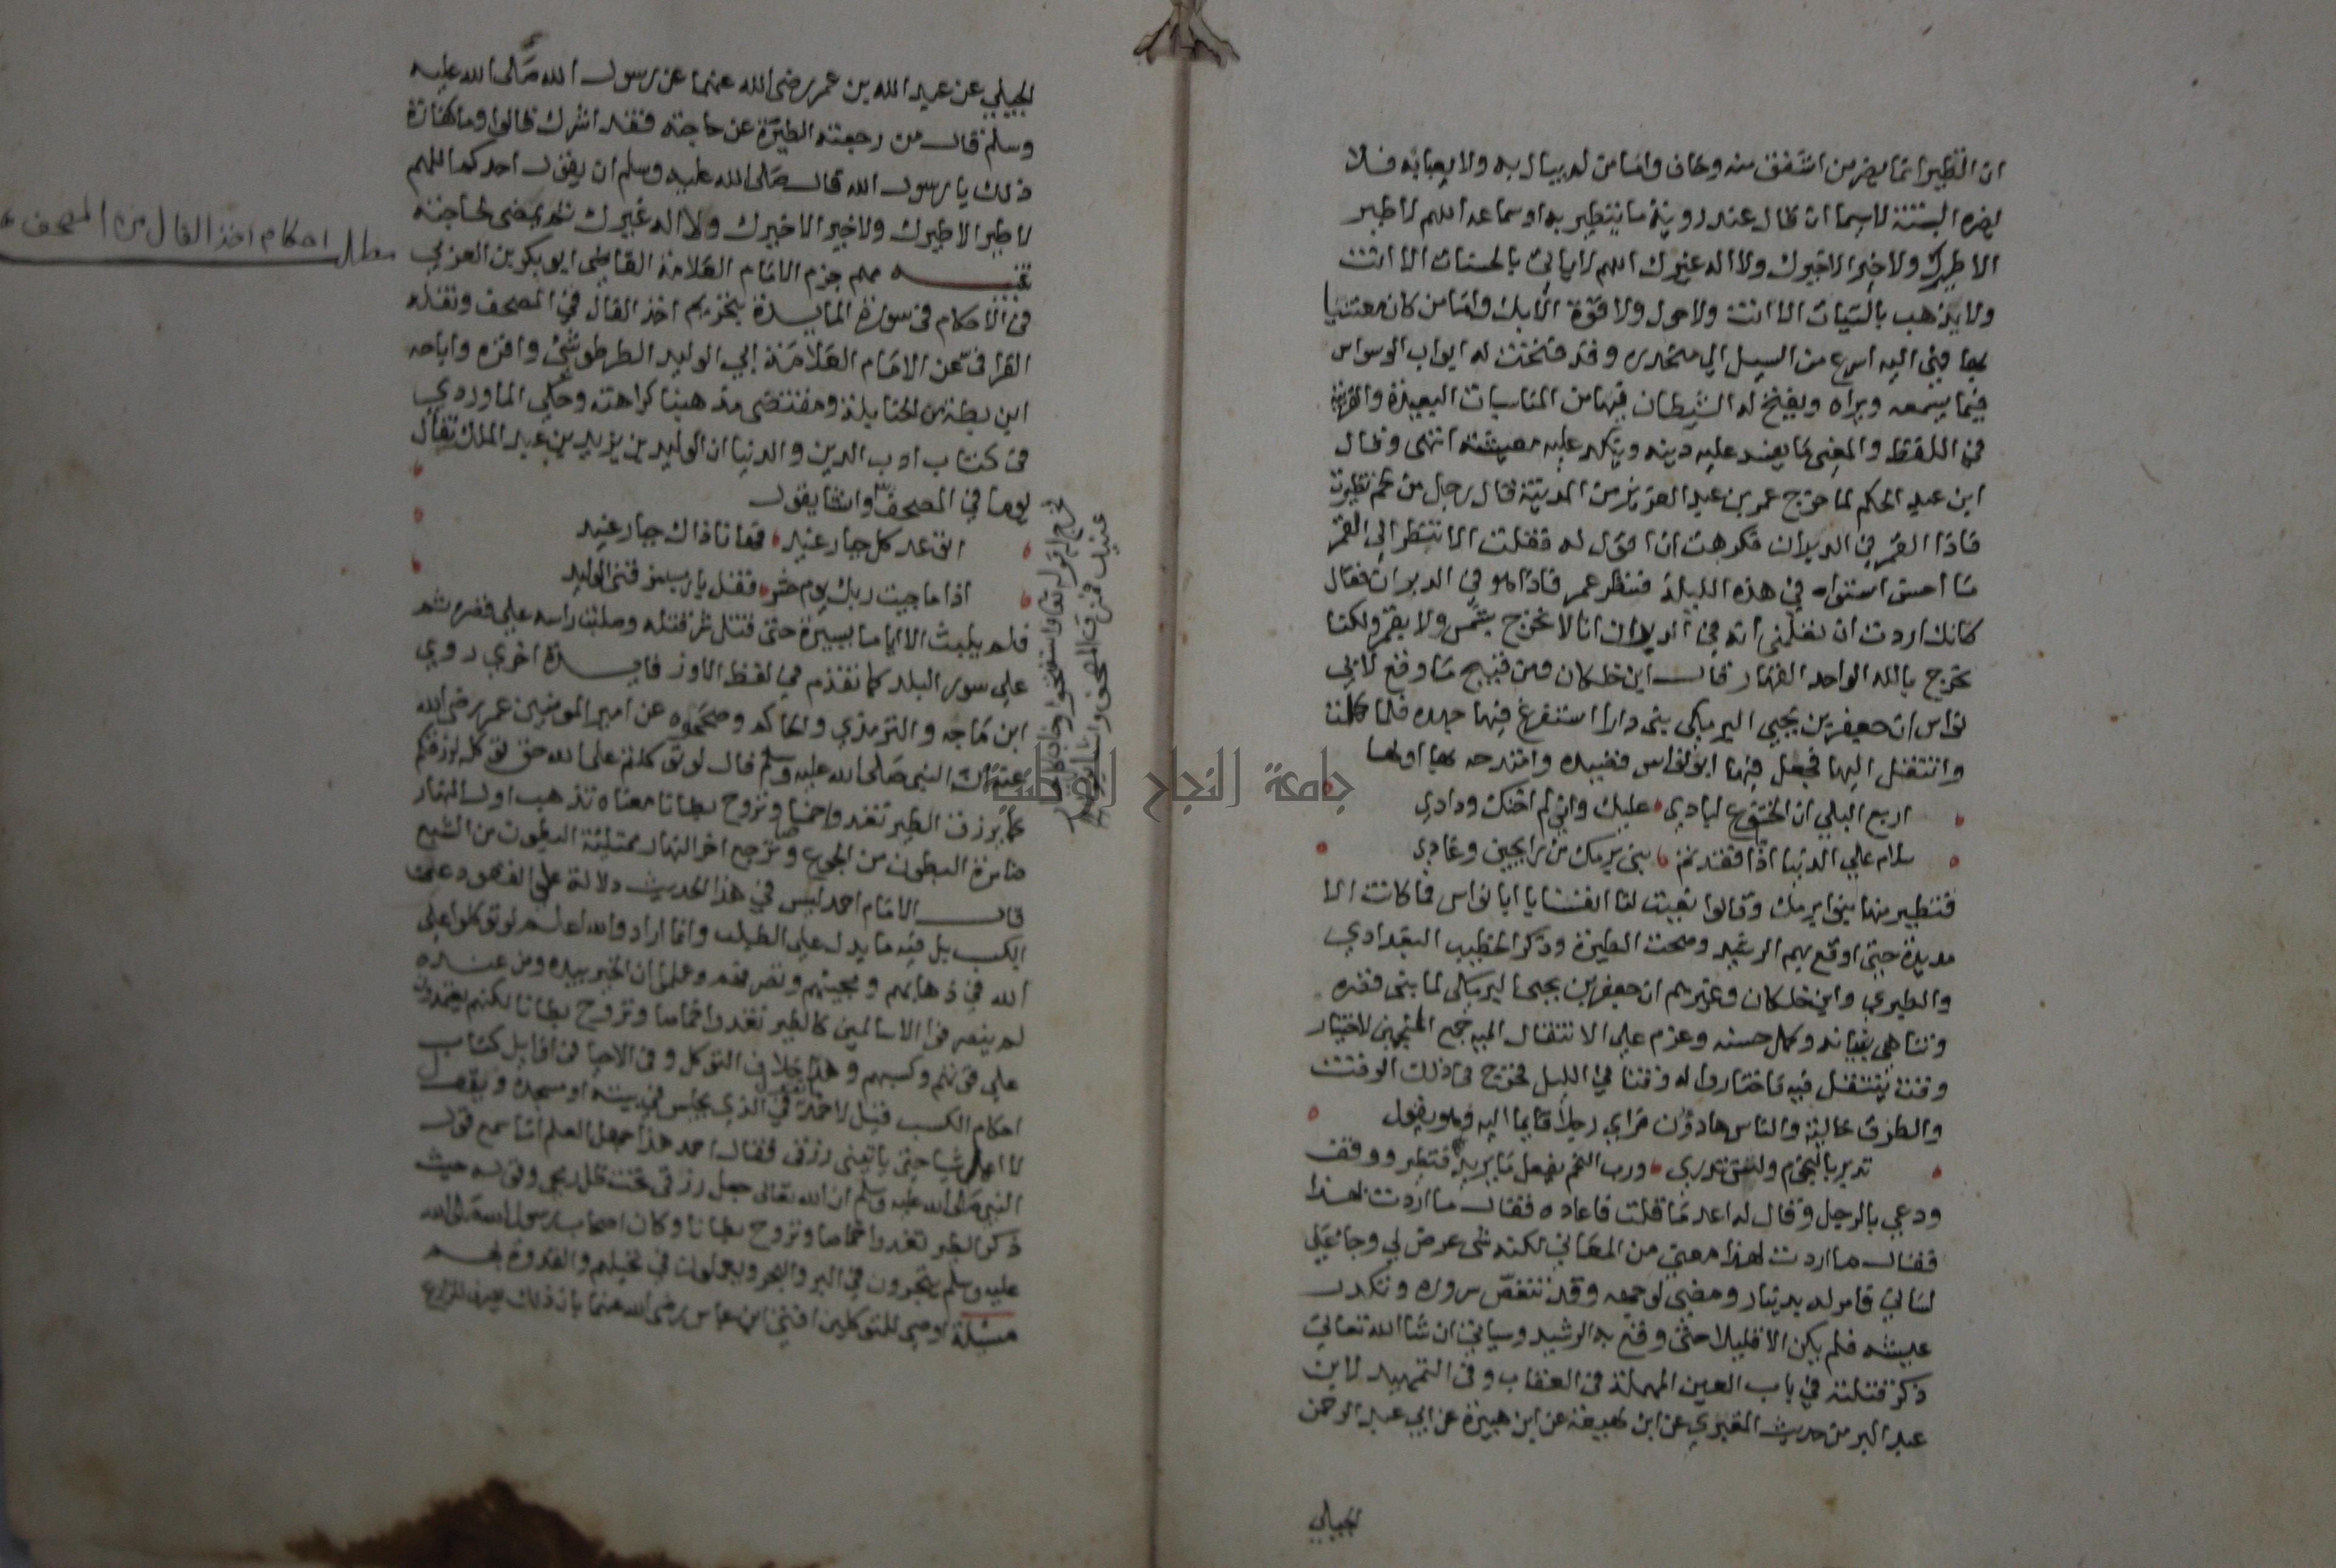 ان التطير انما يضر من اشفق منه وخاف واما من لم يبال به ولا يعبا به فلا
يضره البتة لاسيما ان قال عند روية ما يتطير به او سماعه اللهم لا طير
الا طيرك ولا خير الا خيرك ولا اله غيرك اللهم لا ياتي بالحسنات الا انت
ولا يذهب بالسيات الا انت ولا حول ولا قوة الا بك واما من كان معتنيا
بها فهي اليه اسرع من السيل الى منحدره وقد فتحت له ابواب الوسواس
فيما يسمعه ويراه ويفتح له الشيطان فيها من المناسبات البعيدة والقريبة
في اللفظ والمعنى ما يفسد عليه دينه وينكد عليه معيشته انتهى وقال
ابن عبد الحكم لما خرج عمر بن عبد العزيز من المدينة قال رجل من لخم نظرت
فاذا القمر في الدبران فكرهت ان اقول له فقلت الا تنظر الى القمر
ما احسن استواه في هذه الليلة فنظر عمر فاذا هو في الدبران فقال
كانك اردت ان تعلمني انه في الدبران انا لا نخرج بشمس ولا بقمر ولكنا
نخرج بالله الواحد القهار قال ابن خلكان ومن قبيح ما وقع لابي
نواس ان جعفر بن يحيى البرمكي بنى دارا استفرغ فيها جهده فلما كملت
وانتقل اليها فجعل فيها ابو نواس قصيده وامتدحه بها اولها
اربع البلي ان الخشوع لبادي عليك واني لم اخنك ودادي
سلام على الدنيا اذا ما فقدتم بني برمك من رايحين وغادي
فتطير منها بنوا برمك وقالوا نعيت لنا انفسنا يا ابا نواس فما كانت الا
مديدة حتى اوقع بهم الرشيد وصحت الطيرة وذكر الخطيب البغدادي
والطبري وابن خلكان وغيرهم ان جعفر بن يحيى البرمكي لما بنى قصره
وتناهى بنيانه وكمل حسنه وعزم على الانتقال اليه جمع المنجمين لاختيار
وقت ينتقل فيه فاختاروا له وقتا في الليل فخرج في ذلك الوقت
والطرق خالية والناس هادؤن فراى رجلا قايما اليه وهو يقول
تدبر بالنجوم ولست تدري ورب النجم يفعل ما يريد فتطير ووقف
ودعى بالرجل وقال له اعد ما قلت فاعاده فقال ما اردت بهذا
فقال ما اردت لهذا معنى من المعاني لكنه شي عرض لي وجا على
لساني فامر له بدينار ومضى لوجهه وقد تنغص سروره وتنكدت
عيشه فلم يكن الا قليلا حتى وقع به الرشيد وسياتي ان شا الله تعالى
ذكر قتلته في باب العين المهملة في العقاب وفى التمهيد لابن
عبد البر من حديث المقبري عن ابن لهيعة عن ابن هبيرة عن ابي عبد الرحمن
الجبلي
الجبيلي عن عبد الله بن عمر رضى الله عنهما عن رسول الله صلى الله عليه
وسلم قال من رجعته الطيرة عن حاجته فقد اشرك قالوا وما كفارة
ذلك يا رسول الله قال صلى الله عليه وسلم ان يقول احدكم اللهم
لا طير الا طيرك ولا خير الا خيرك ولا اله غيرك ثم يمضى لحاجته
جزم الامام العلامة القاضي ابو بكر بن العربي
في الاحكام في سورة المايدة بتحريم اخذ الفال في المصحف ونقله
القرافي عن الامام العلامة ابي الوليد الطرطوشي واقره واباحه
ابن بطة من الحنابلة ومقتضى مذهبنا كراهته وحكى الماوردي
في كتاب ادب الدين والدنيا ان الوليد بن يزيد بن عبد الملك تفأل
يوما في المصحف وانشا يقول
اتوعد كل جبار عنيد فها انا ذاك جبار عنيد
اذا ما جيت ربك يوم حشر فقل يا رب مزقني الوليد
فلم يلبث الا اياما يسيرة حتى قتل شر قتله وصلبت راسه على قصره ثم
على سور البلد كما تقدم في لفظ الاوز فايدة اخرى روى
ابن ماجه والترمذي والحاكم وصححوه عن امير المومنين عمر رضى الله
عنه ان النبي صلى الله عليه وسلم قال لو توكلتم على الله حق توكله لرزقكم
كما يرزق الطير تغدوا خماصا وتروح بطانا معناه تذهب اول النهار
ضامرة البطون من الجوع وترجع اخر النهار ممتلئة البطون من الشبع
قال الامام احمد ليس في هذا الحديث دلالة على القعود عن
الكسب بل فيه ما يدل على الطلب وانما اراد والله اعلم لو توكلوا على
الله في ذهابهم ومجيئهم وتصرفهم وعلموا ان الخير بيده ومن عنده
لم ينصرفوا الا سالمين كالطير تغدوا خماصا وتروح بطانا لكنهم يعتمدون
على قوتهم وكسبهم وهذا خلاف التوكل وفي الاحيا في اوايل كتاب
احكام الكسب قيل لاحمد في الذي يجلس في بيته او مسجده ويقول
لا اعمل شيا حتى ياتيني رزقي فقال احمد هذا جهل العلم اما سمع قول
النبي صلى الله عليه وسلم ان الله تعالى جعل رزقي تحت ظل رمحي وقوله حيث
ذكر الطير تغدوا خماصا وتروح بطانا وكان اصحاب رسول الله صلى الله
عليه وسلم يتجرون في البر والبحر ويعملون في نخيلهم والقدوة بهم
مسئلة اوصى للمتوكلين افتى ابن عباس رضى الله عنهما بان ذلك يصرف للزراع
مطلب احكام اخذ الفال من المصحف
جامعة النجاح الوطنية